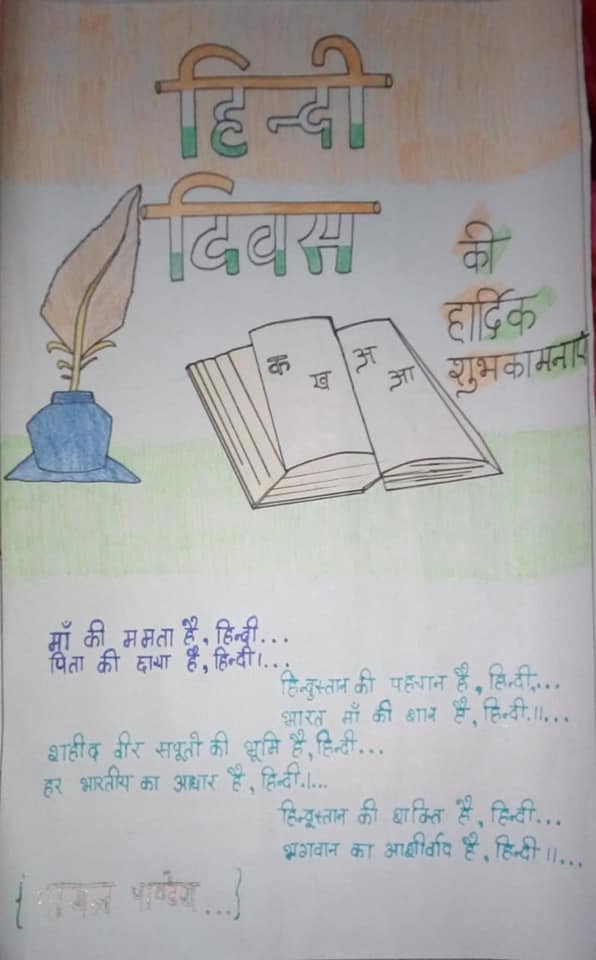 हिन्दी
दिवस
की
हार्दिक
शुभकामनाएं
क
ख
अ
आ
माँ की ममता है, हिन्दी...
पिता की छाया है, हिन्दी।...
हिन्दुस्तान की पहचान है, हिन्दी,...
भारत माँ की शान है, हिन्दी.।।...
शहीद वीर सपूतो की भूमि है, हिन्दी...
हर भारतीय का आधार है, हिन्दी.।...
हिन्दुस्तान की शक्ति है, हिन्दी...
भगवान का आशीर्वाद है, हिन्दी ।।...
{ पाण्डेय ...}